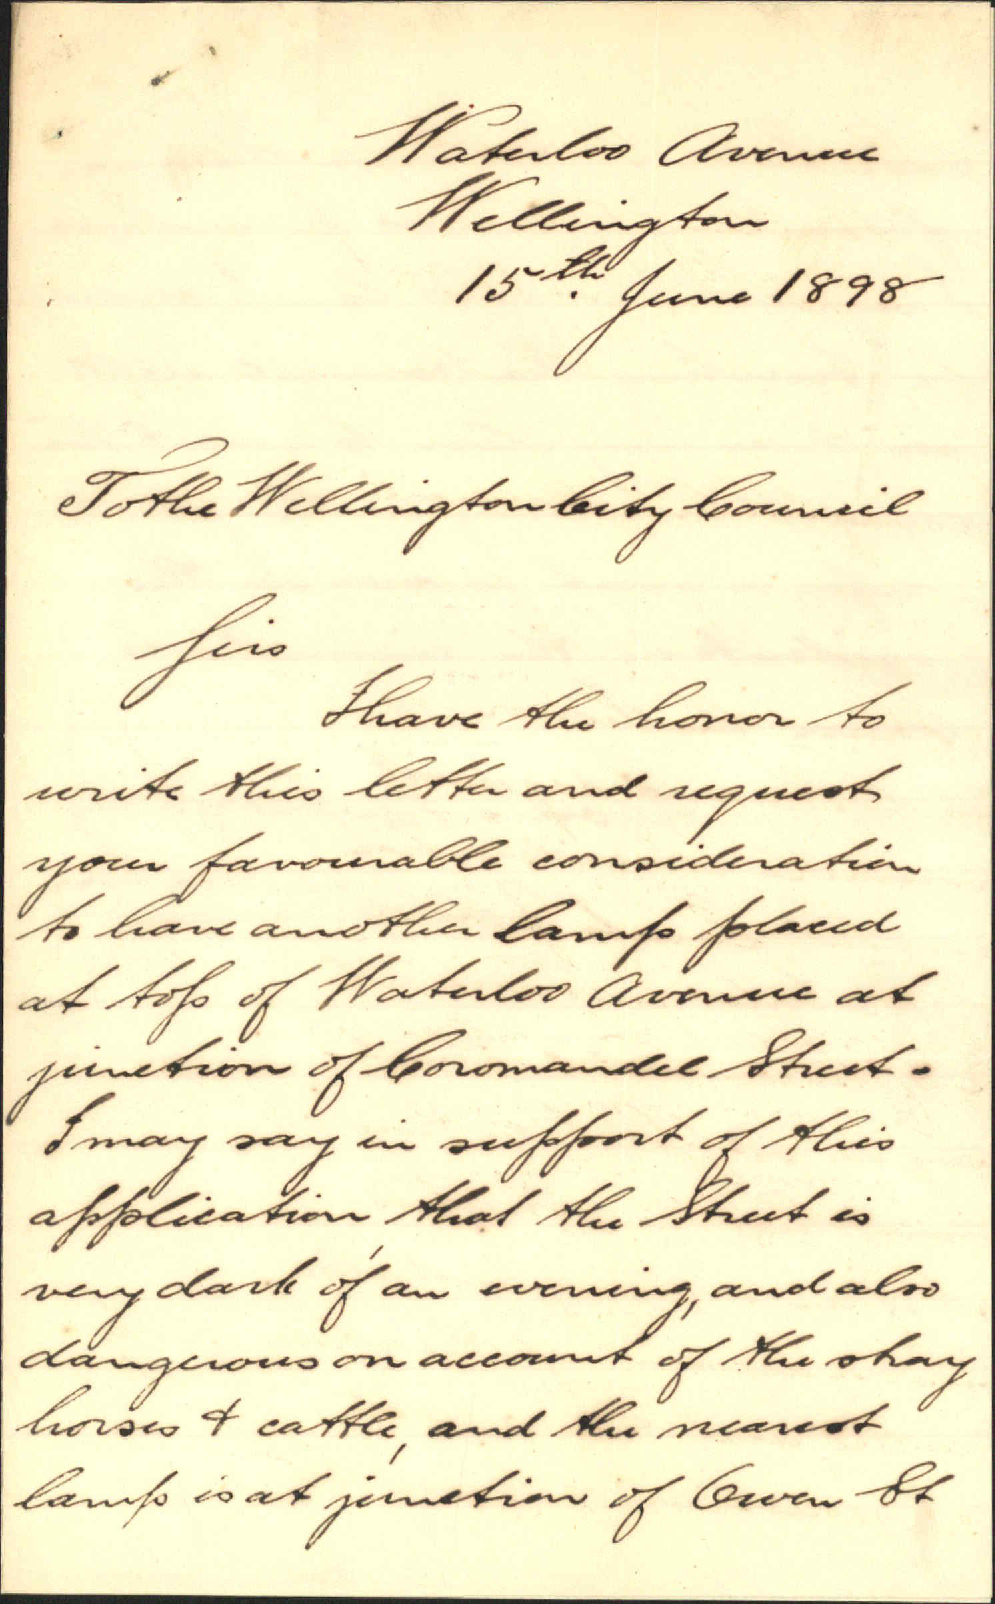 Waterloo Avenue
Wellington
15th. June 1898
To the Wellington City Council
Sirs
I have the honor to
write this letter and request
your favourable consideration
to have another lamp placed
at top of Waterloo Avenue at
junction of Coromandel Street.
I may say in support of this
application, that the Street is
very dark of an evening, and also
dangerous on account of the stray
horses & cattle, and the nearest
lamp is at junction of Owen St